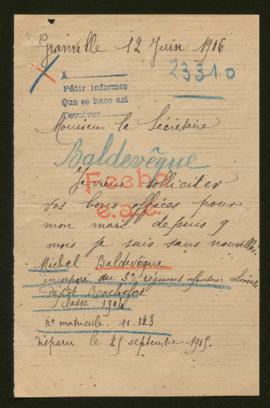 Granville 12 Juin 1916
23310
A
Pédir informes
Que se hace así
Devolver
Monsieur le Sécrétaire
Baldevêque
Je viens solliciter
vos bons offices pour
mon mari depuis 9
mois je suis sans nouvelles
Michel Baldevêque
incorporé au Régiment infanterie coloniale
dépôt Rochefort
classe 1904
n° matricule. 11.323
disparu le 25 septembre 1915.